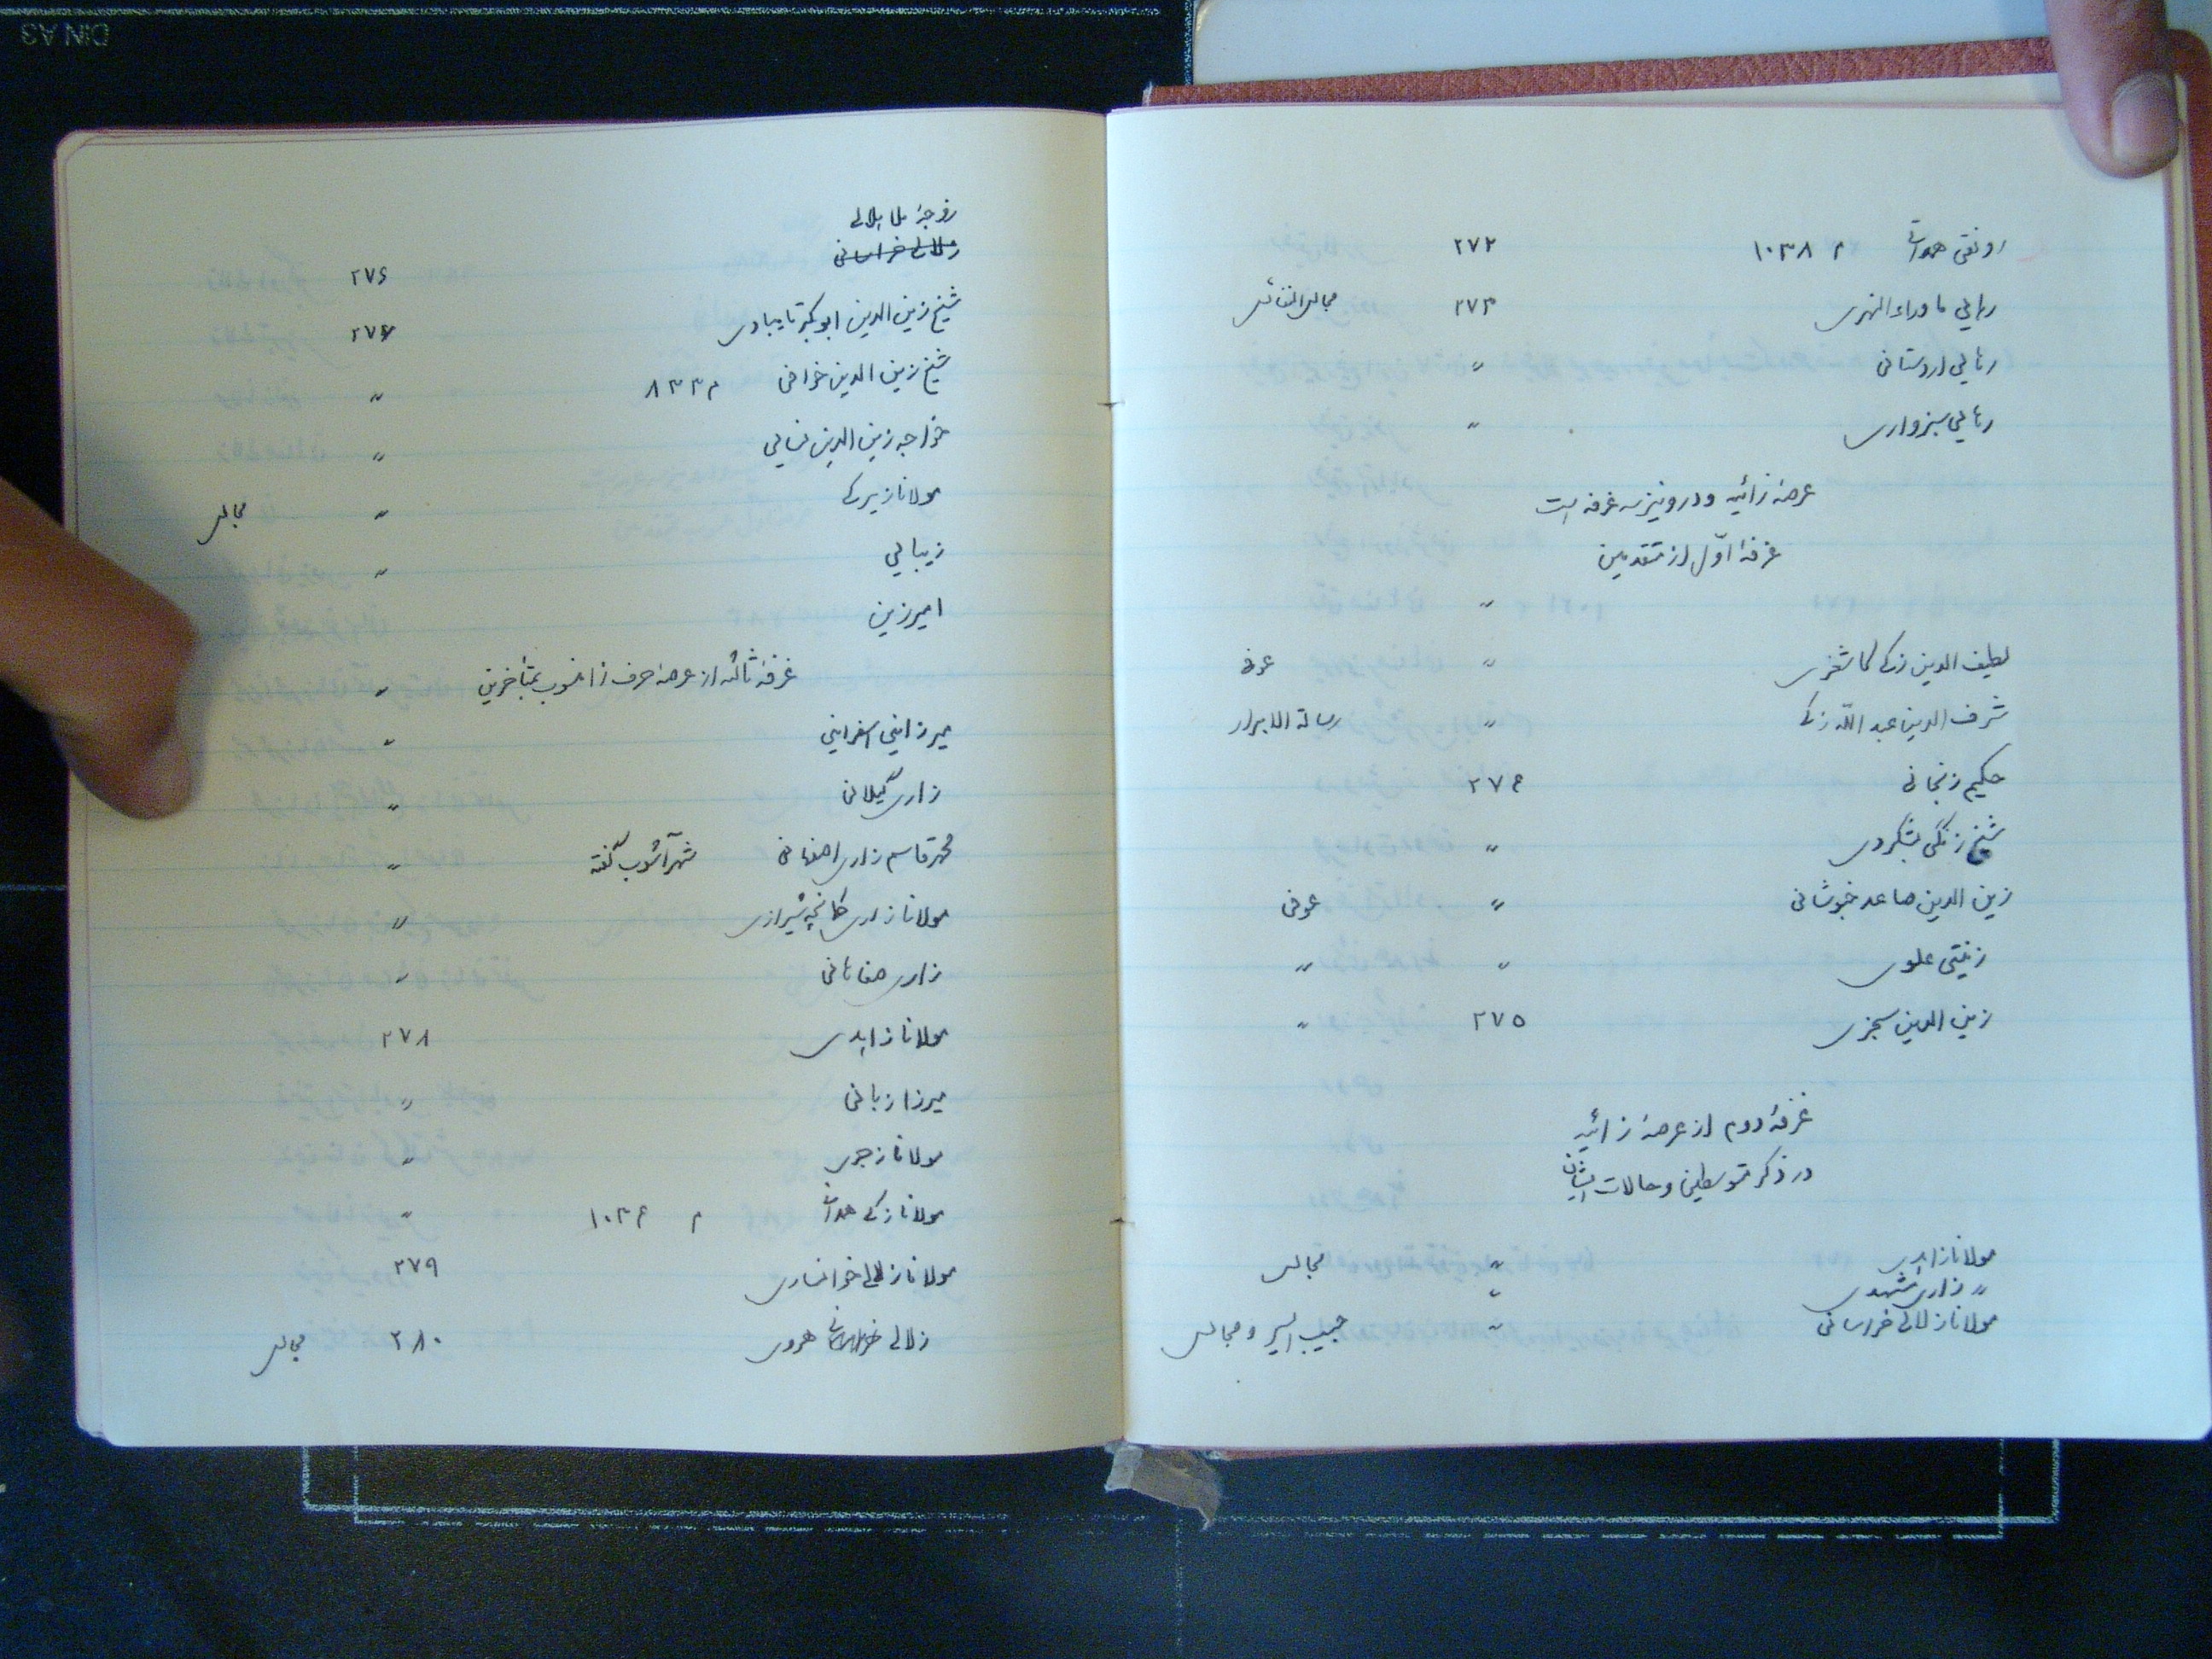 رونقی همدانی م ۱۰۳۸ ۲۷۲
رهایی ماوراءالنهری ۲۷۳ مجالس النفائس
رهایی اردستانی "
رهایی سبزواری "
عرصهٔ زائیه و در و نیز سه غرفه است
غرفهٔ اوّل از متقدمین
"
لطیف الدین زکی کاشغری " عوفی
شرف الدین عبد اللّه زکی " رسالة الابرار
حکیم زنجانی ۲۷۴
شیخ زنگی بشکردی "
زین الدین صاعد خبوشانی " عوفی
زینتی علوی " "
زین الدین سجزی ۲۷۵ "
غرفهٔ دوم از عرصهٔ زائیه
در ذکر متوسطین و حالات ایشان
مولانا زاهدی " مجالس
" زاری مشهدی "
مولانا زلالی خراسانی " حبیب السیر و مجالس
زوجهٔ ملا هلالی
زلالی خراسانی ۲۷۶
شیخ زین الدین ابوبکر تایبادی ۲۷۷
شیخ زین الدین خوافی م ۸۳۳ "
خواجه زین الدین نسایی "
مولانا زیرکی " مجالس
زیبایی "
امیر زین
غرفهٔ ثالثه از عرصهٔ حرف زا منسوب بمتأخرین "
میر زاینی اسفراینی "
زاری گیلانی "
محمد قاسم زاری اصفهانی شهرآشوب گفته "
مولانا زاری کمانچه شیرازی "
زاری صفاهانی "
مولانا زاهدی ۲۷۸
میرزا زبانی "
مولانا زجری "
مولانا زکی همدانی م ۱۰۳۴ "
مولانا زلالی خوانساری ۲۷۹
زلالی هروی ۲۸۰ مجالس
DIN A3